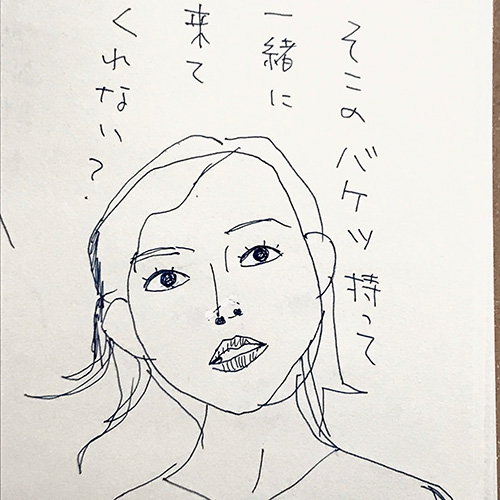 そこのバケツ持って
一緒に
来て
くれない?